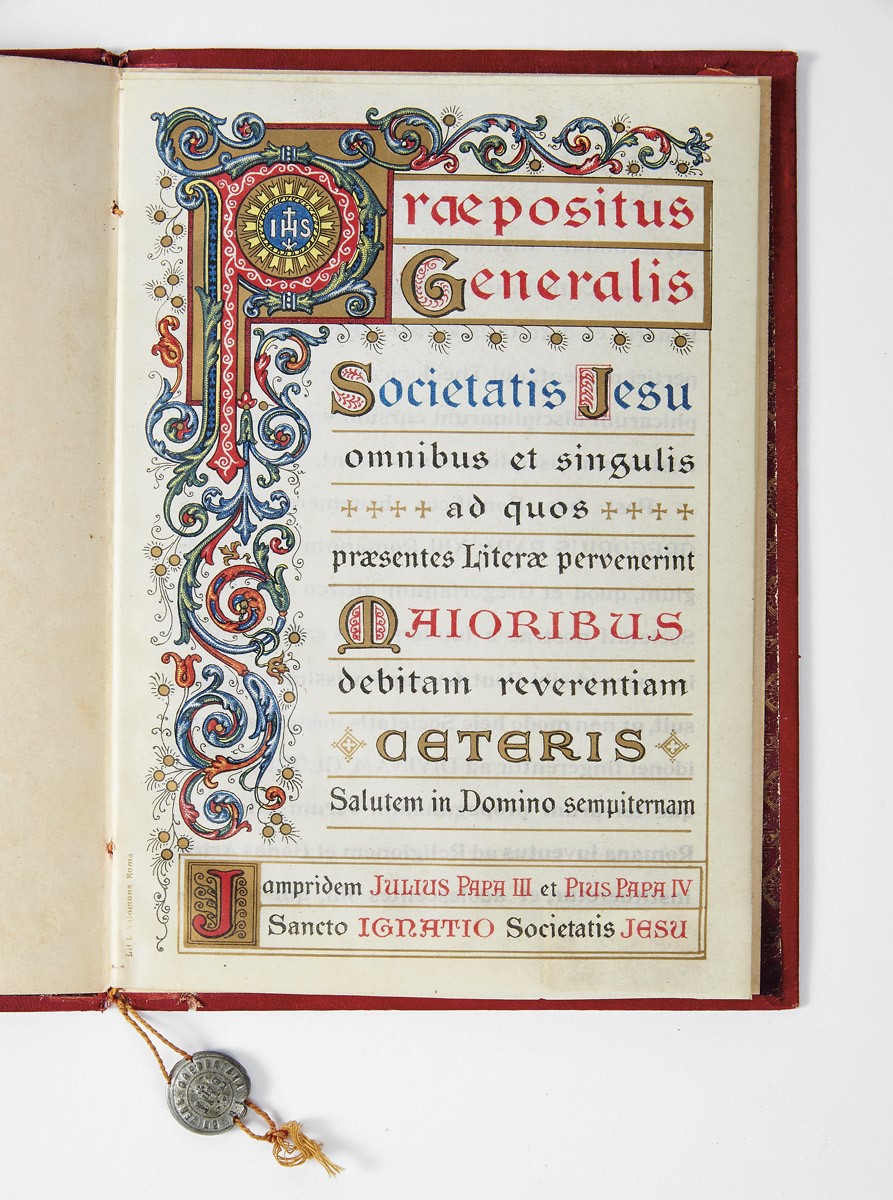 Præpositus
IHS
Generalis
Societatis Jesu
omnibus et singulis
ad quos
præsentes Literæ pervenerint
MAIORIBUS
debitam reverentiam
CETERIS
Salutem in Domino sempiternam
Jampridem JULIUS PAPA III et PIUS PAPA IV
Sancto IGNATIO Societatis JESU
Salomone, Roma